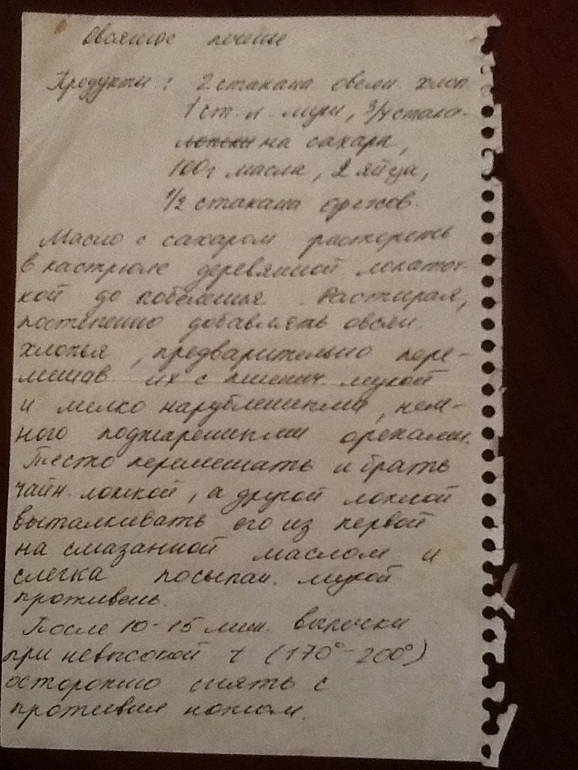 Овсяное печение
Продукты: 2 стакана овсян. хлоп.
1 ст. л. муки, 3/4 стака-
ложки на сахара,
100г масла, 2 яйца,
1/2 стакана орехов.
Масло с сахаром растереть
в кастрюле деревянной лопаточ-
кой до побеленья. Растирая,
постепенно добавлять овсян.
хлопья, предварительно пере-
мешав их с пшенич. мукой
и мелко нарубленными, нем-
ного поджаренными орехами.
Тесто перемешать и брать
чайн. ложкой, а другой ложкой
выталкивать его из первой
на смазанной маслом и
слегка посыпан. мукой
противень.
После 10-15 мин. выпечки
при невысокой t (170°-200°)
осторожно снять с
противня ножом.